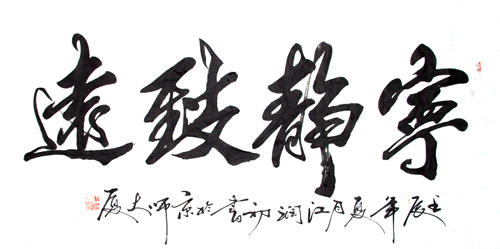 寧静致遠
壬辰年夏月江润初書於京師大厦